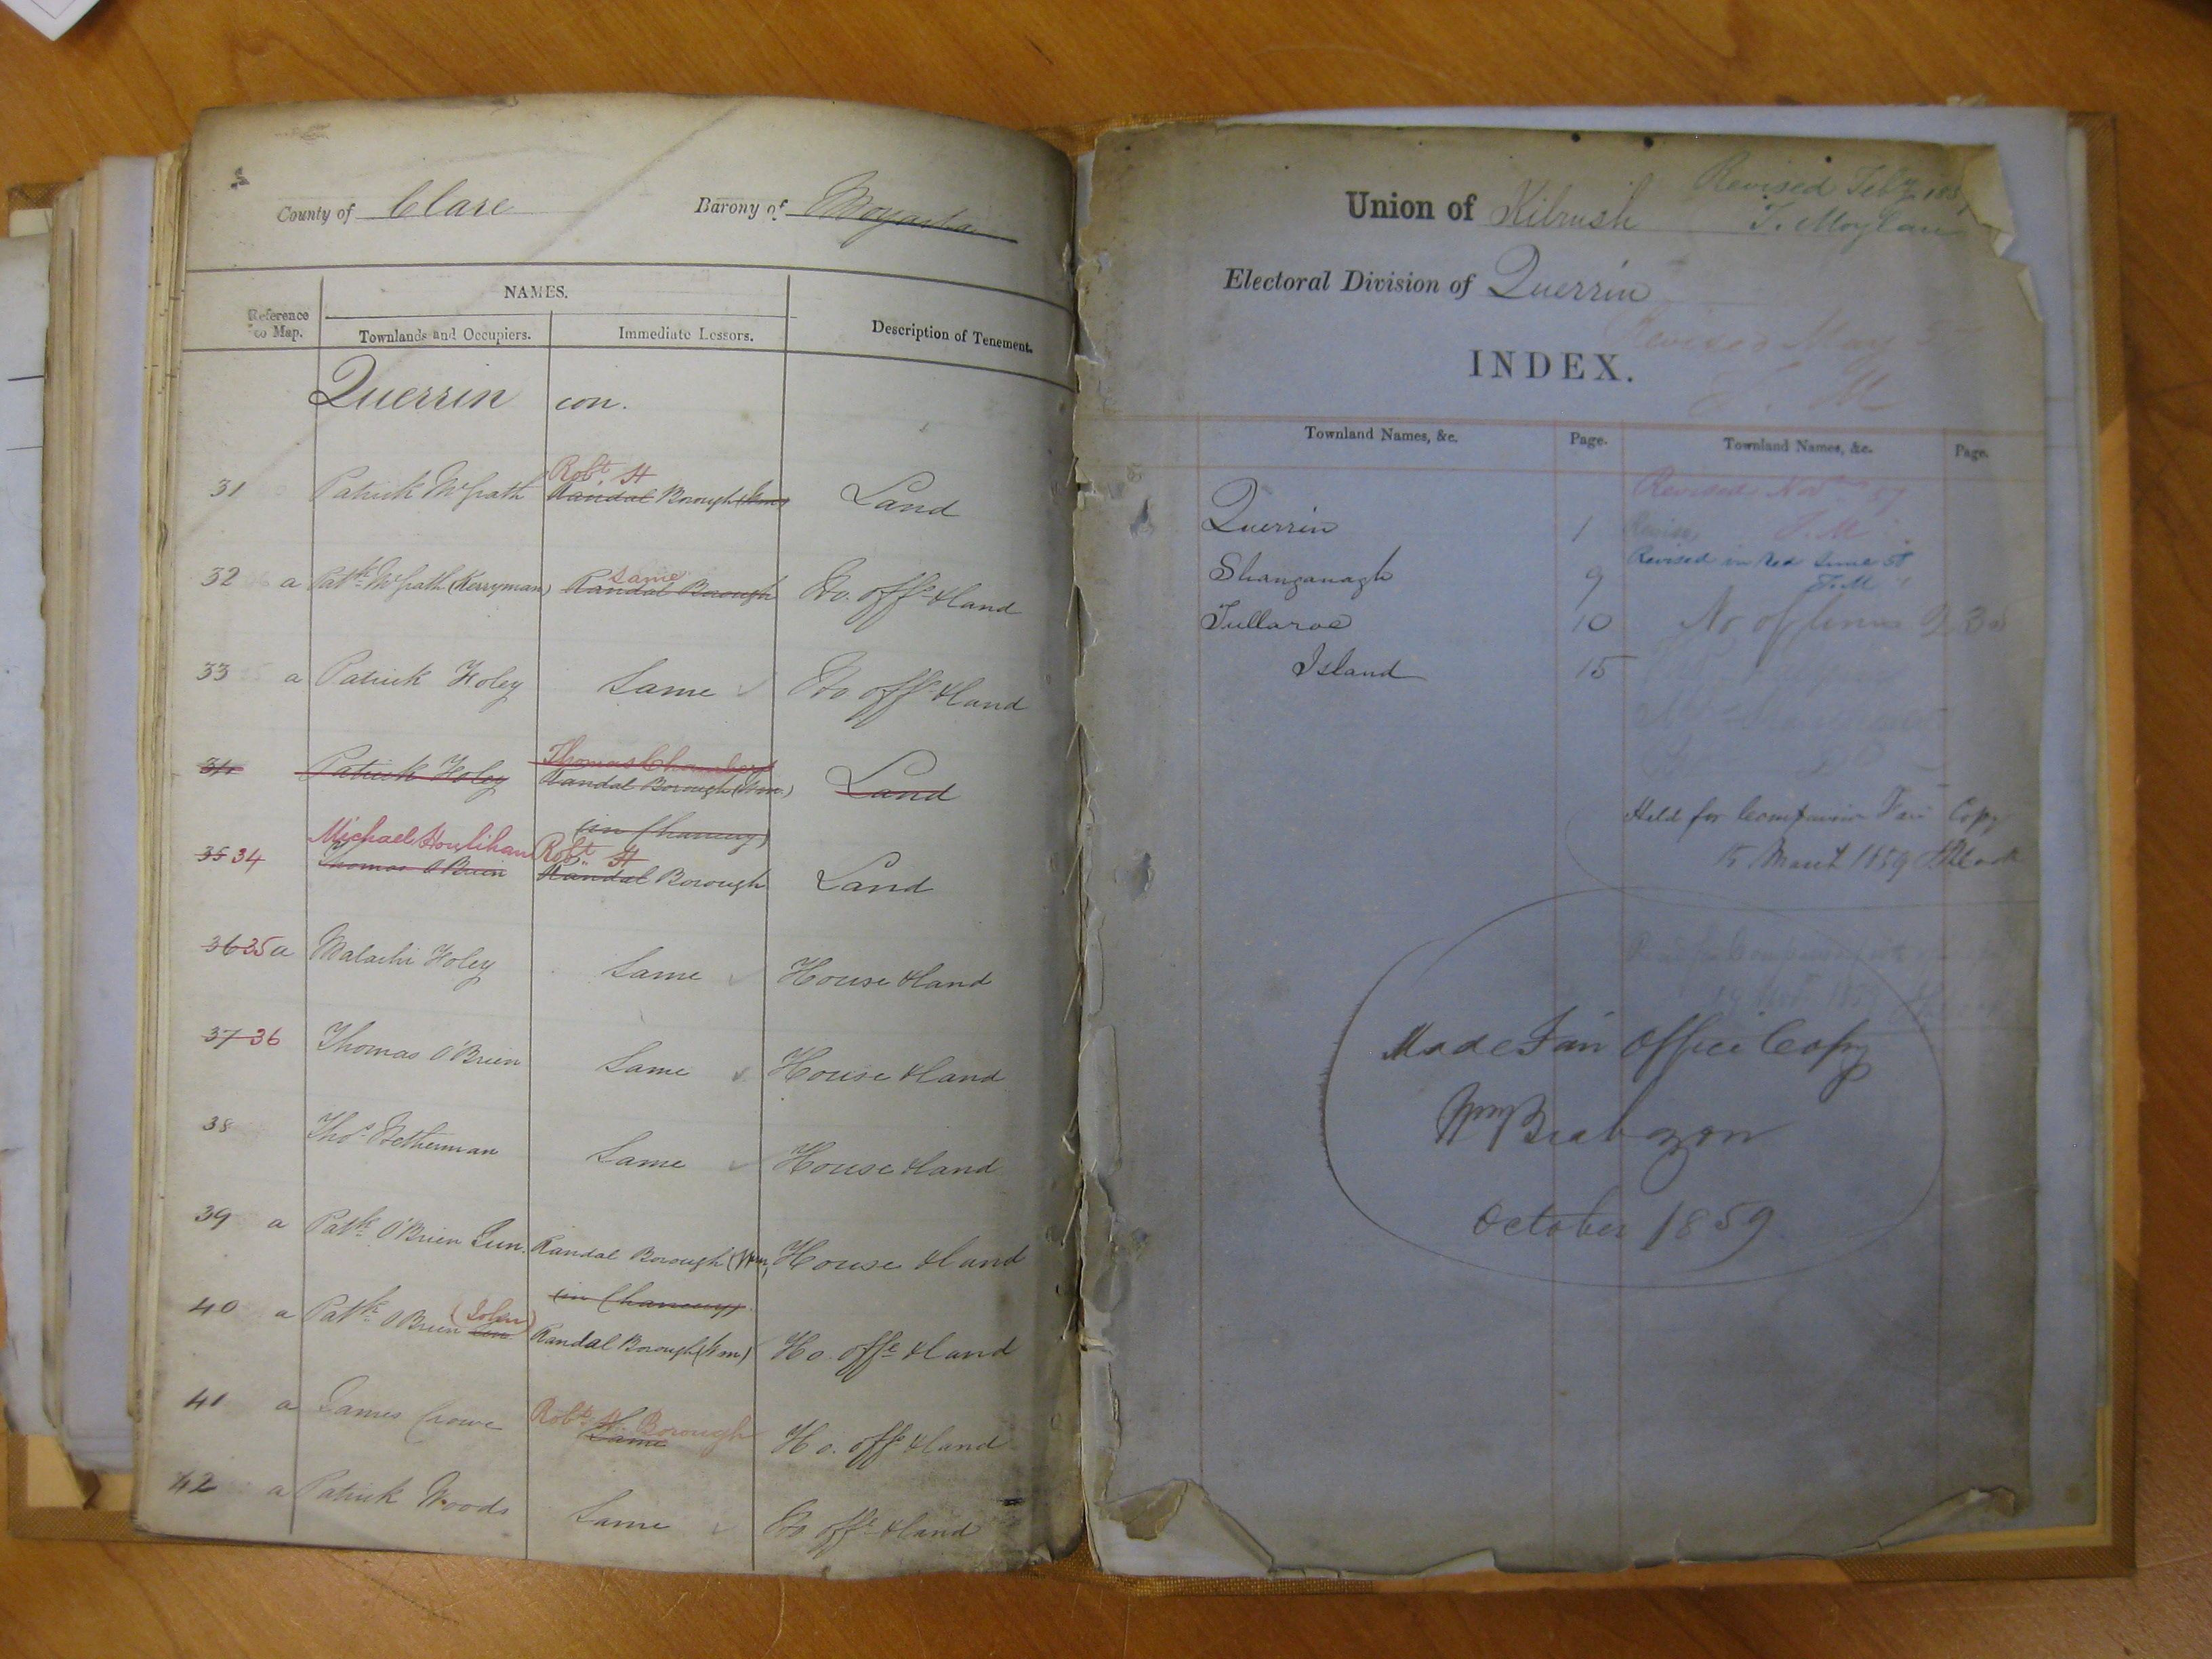 County of Clare Barony of Moyarta
Reference to Map.
NAMES.
Townlands and Occupiers. Immediate Lessors. Description of Tenement.
Querrin con.
Robt. H
31 Patrick McGrath Randal Borough (Wm) Land
same
32 a Patk. McGrath (Kerryman) Randal Borough Ho. offs. & land
33 a Patrick Foley Same Ho offs. & land
Thomas Chambers
34 Patrick Foley Randal Borough (Wm.) Land
(in Chancery)
Michael Houlihan Robt. H
35 34 Thomas O'Brien Randal Borough Land
36 35 a Malachi Foley Same House & land
37 36 Thomas O'Brien Same House & land
38 Thos. Betherman Same House & land
39 a Patk. O'Brien Jun. Randal Borough (Wm) House & land
(in Chancery)
(John)
40 a Patk. O'Brien Sen Randal Borough (Wm) Ho. offs. & land
Robt. H. Borough
41 a James Crowe Same Ho. offs. & land
42 a Patrick Woods Same Ho offs. & land
Revised Feby 185
Union of Kilrush T. Moylan
Electoral Division of Querrin
Revised May
J. M
INDEX.
Townland Names, &c. Page. Townland Names, &c. Page.
Revised Novr 57
J. M
Querrin 1
Revised in red June 58
J. M
Shanganagh 9
Tullaroe 10 No of tenes
Island 15
Held for Comparison Fair Copy
15 March 1859
Made Fair Office Copy
Wm Brabazon
October 1859